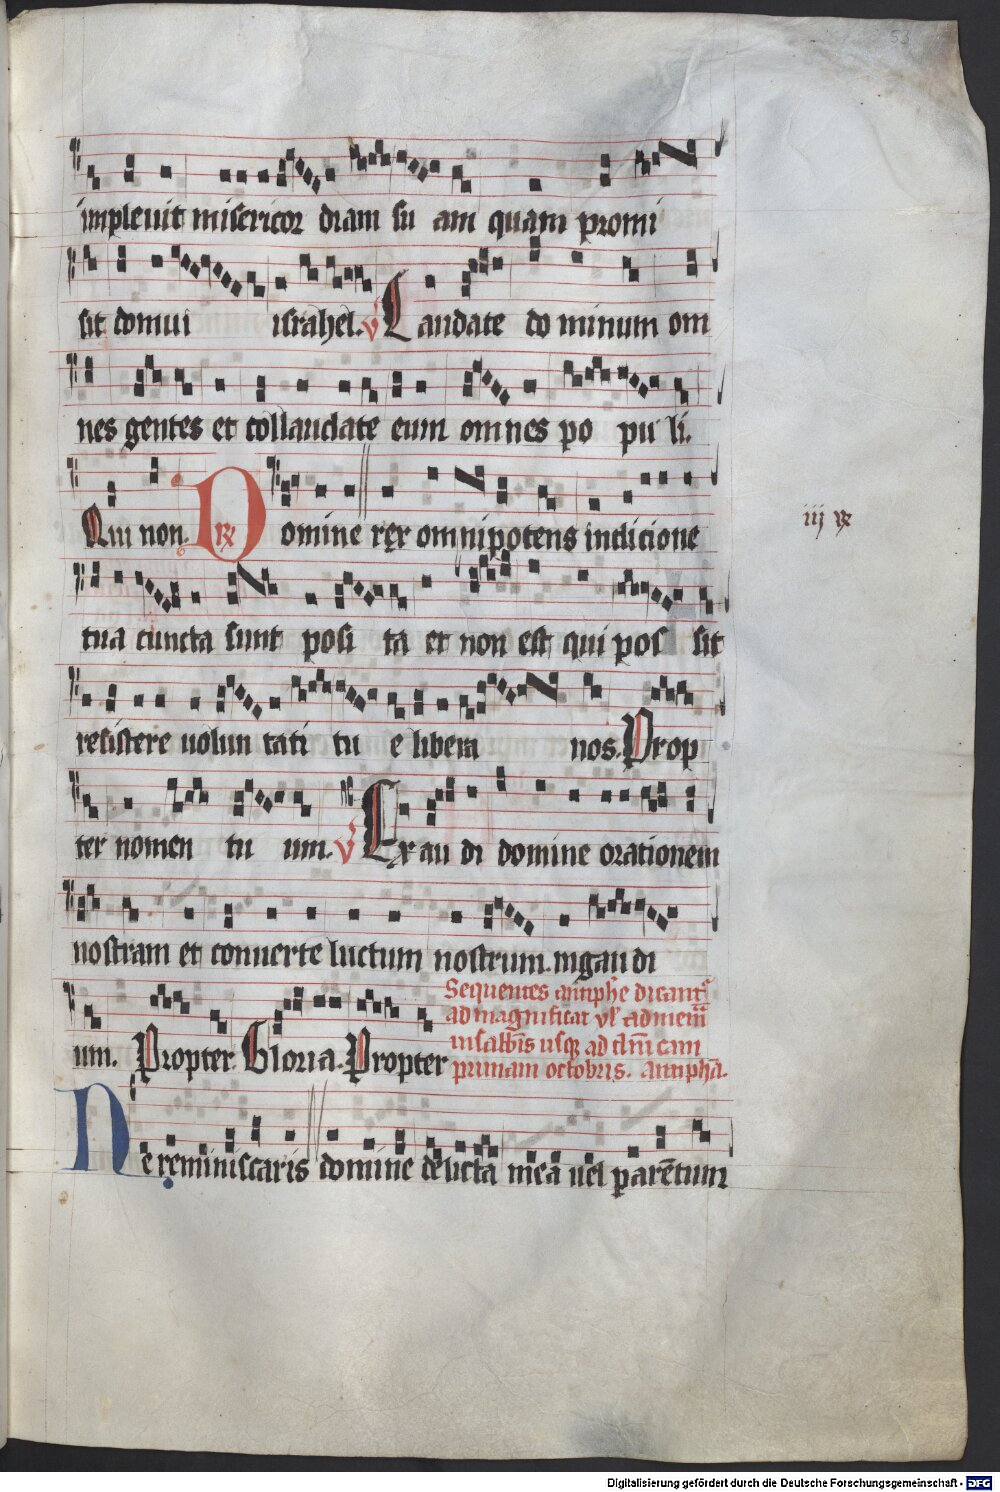 53
impleuit misericor diam su am quam promi
sit domui israhel. v Laudate do minum om
nes gentes et collaudate eum omnes po pu li.
Qui non. R Domine rex omnipotens indicione
iij R
tua cuncta sunt posi ta et non est qui pos sit
resistere uolun tati tu e libera nos. Prop
ter nomen tu um. v Exau di domine orationem
nostram et conuerte luctum nostrum. ingau di
um. Propter. Gloria. Propter
Sequentes antiphe dicant
ad magnificat vl admem
insabbis usq ad dnicam
primam octobris. antipha.
Ne reminiscaris domine delicta mea uel parentum
Digitalisierung gefördert durch die Deutsche Forschungsgemeinschaft - DFG